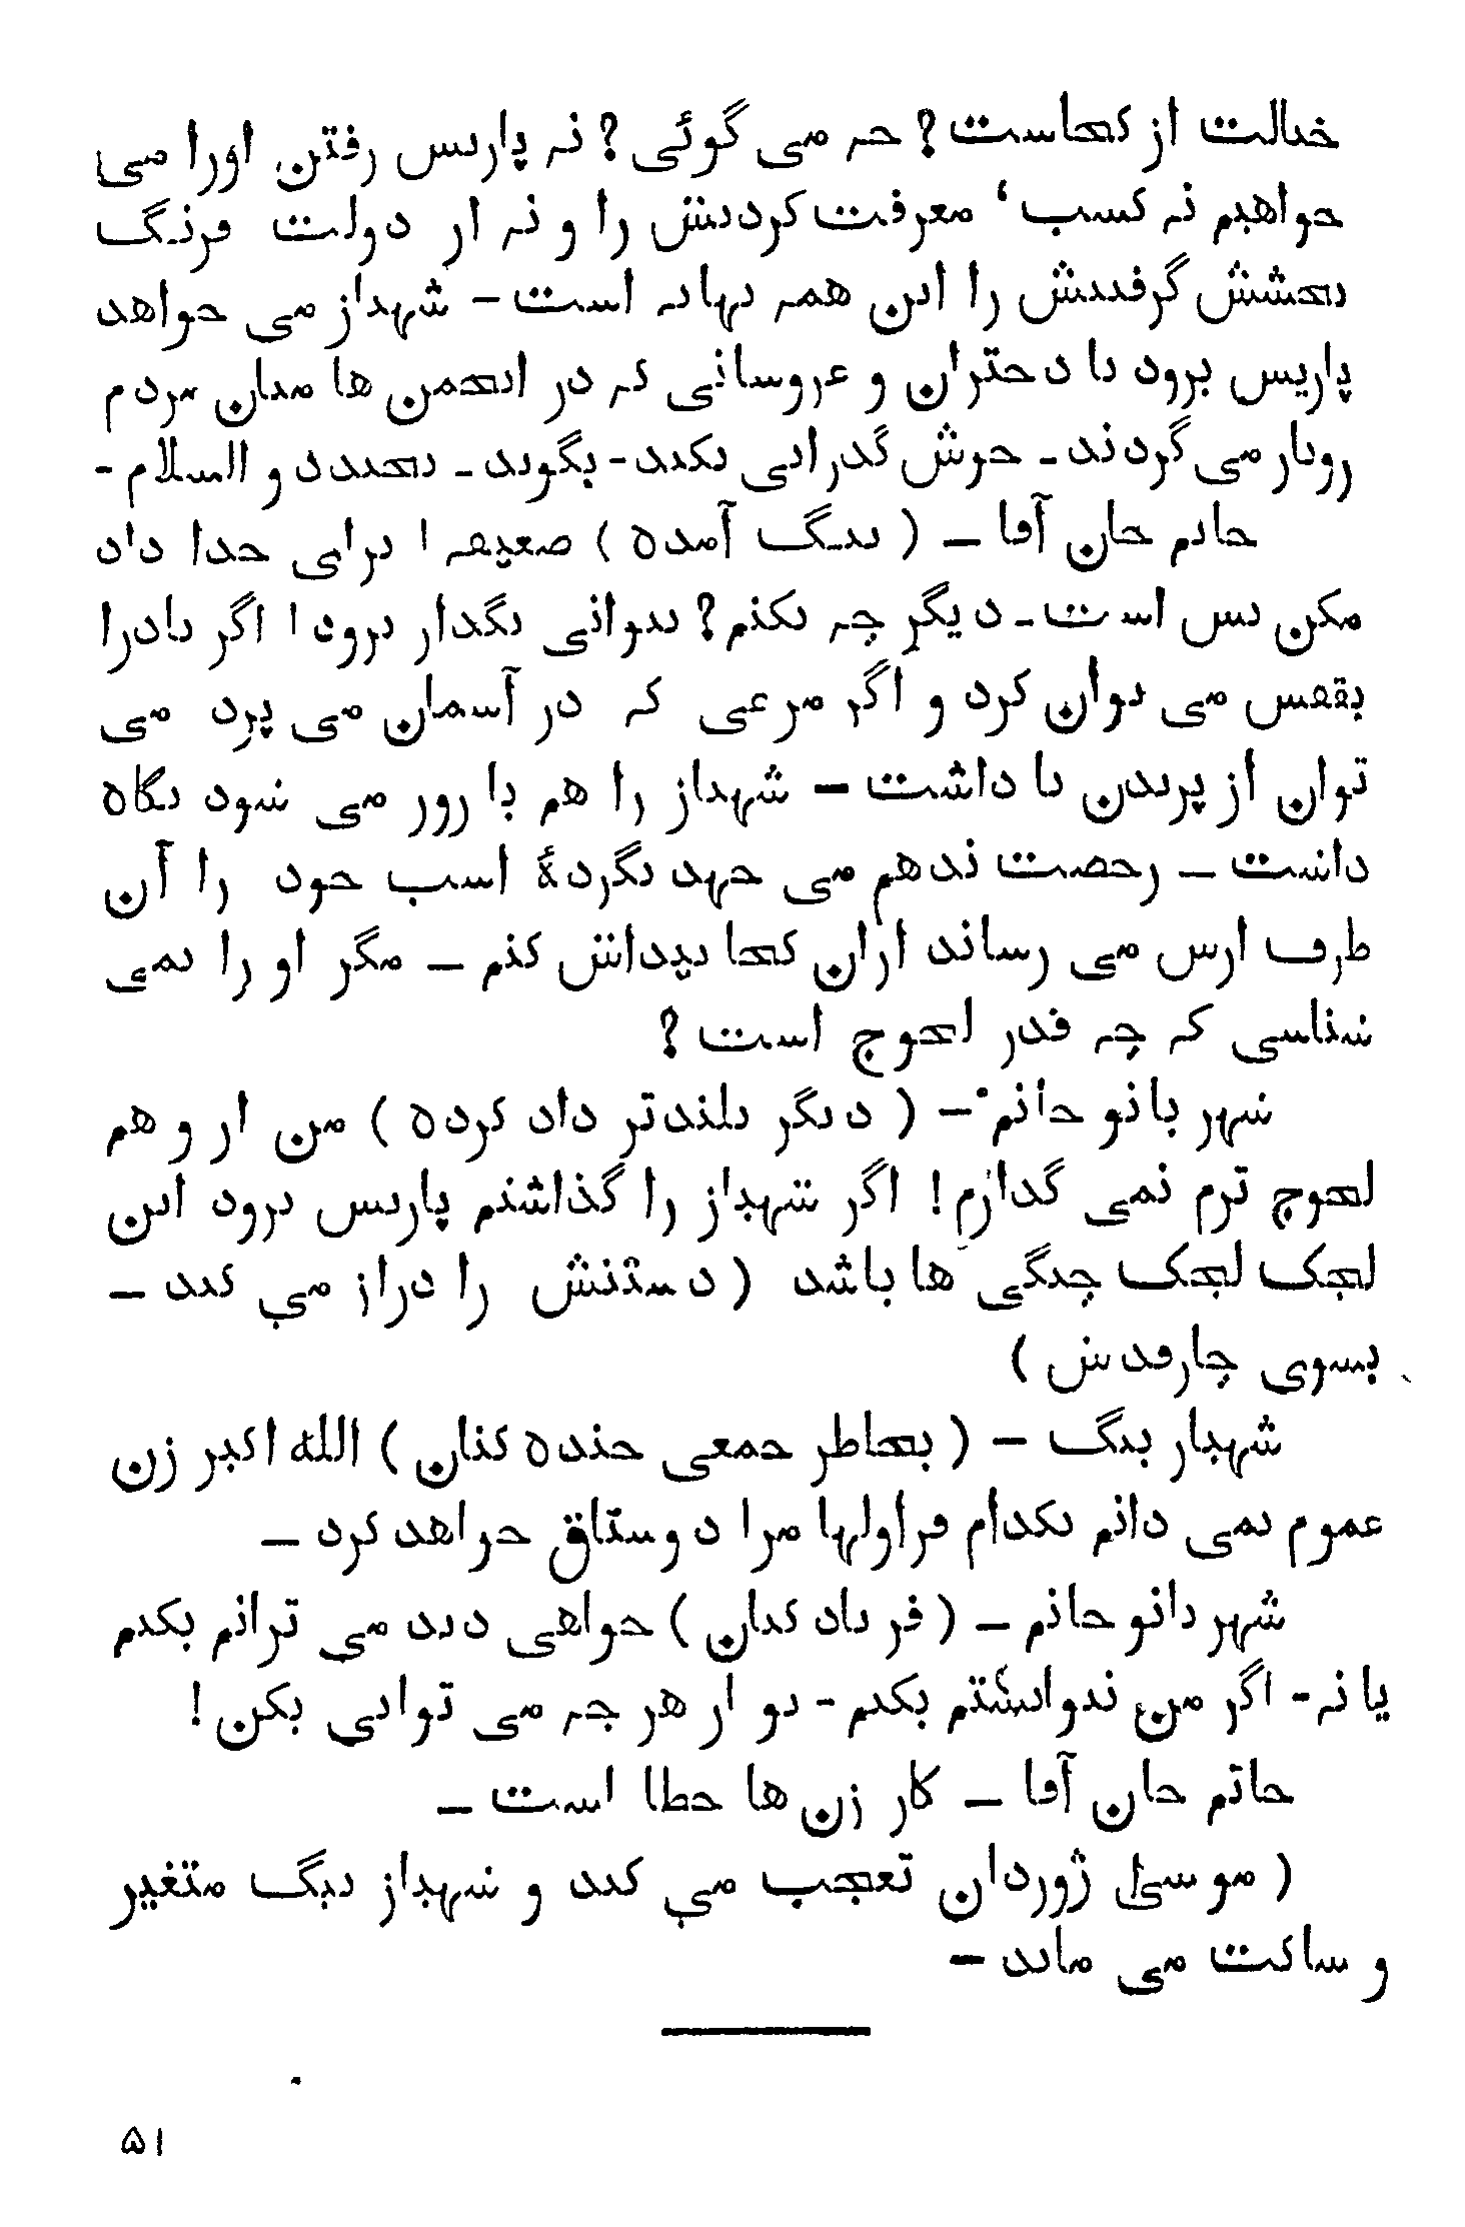 خیالت از کجاست؟ چه می گوئی؟ نه پاریس رفتن اورا می
خواهیم نه کسب، معرفت کردنش را و نه از دولت فرنگ
بخشش گرفتنش را این همه بهانه است - شهباز می خواهد
پاریس برود با دختران و عروسانی که در انجمن ها میان مردم
روباز می گردند - خوش گذرانی بکند - بگوید - بخندد و السلام -
حاتم خان آقا - ( بتنگ آمده ) ضعیفه ! برای خدا داد
مکن بس است - دیگر چه بکنم؟ بتوانی نگذار برود ! اگر بادرا
بقفس می توان کرد و اگر مرغی که در آسمان می پرد می
توان از پریدن نا داشت - شهباز را هم با زور می شود نگاه
داشت - رخصت ندهم می جهد بگردۀ اسب خود را آن
طرف ارس می رساند ازان کجا پیداش کنم - مگر او را نمی
شناسی که چه قدر لجوج است؟
شهر بانو خانم - ( دیگر بلندتر داد کرده ) من از و هم
لجوج ترم نمی گذارم! اگر شهباز را گذاشتم پاریس برود این
لچک لچک چنگی ها باشد ( دستنش را دراز می کند -
بسوی چارقدش )
شهباز بیگ - ( بخاطر جمعی خنده کنان ) الله اکبر زن
عموم نمی دانم بکدام قراولها مرا دوستاق خواهد کرد -
شهر بانو خانم - ( فریاد کنان ) خواهی دید می ترانم بکنم
یا نه - اگر من نتوانستم بکنم - تو از هر چه می توانی بکن!
حاتم خان آقا - کار زن ها خطا است -
( موسیٰ ژوردان تعجب می کند و شهباز بیگ متغیر
و ساکت می ماند -
۵۱